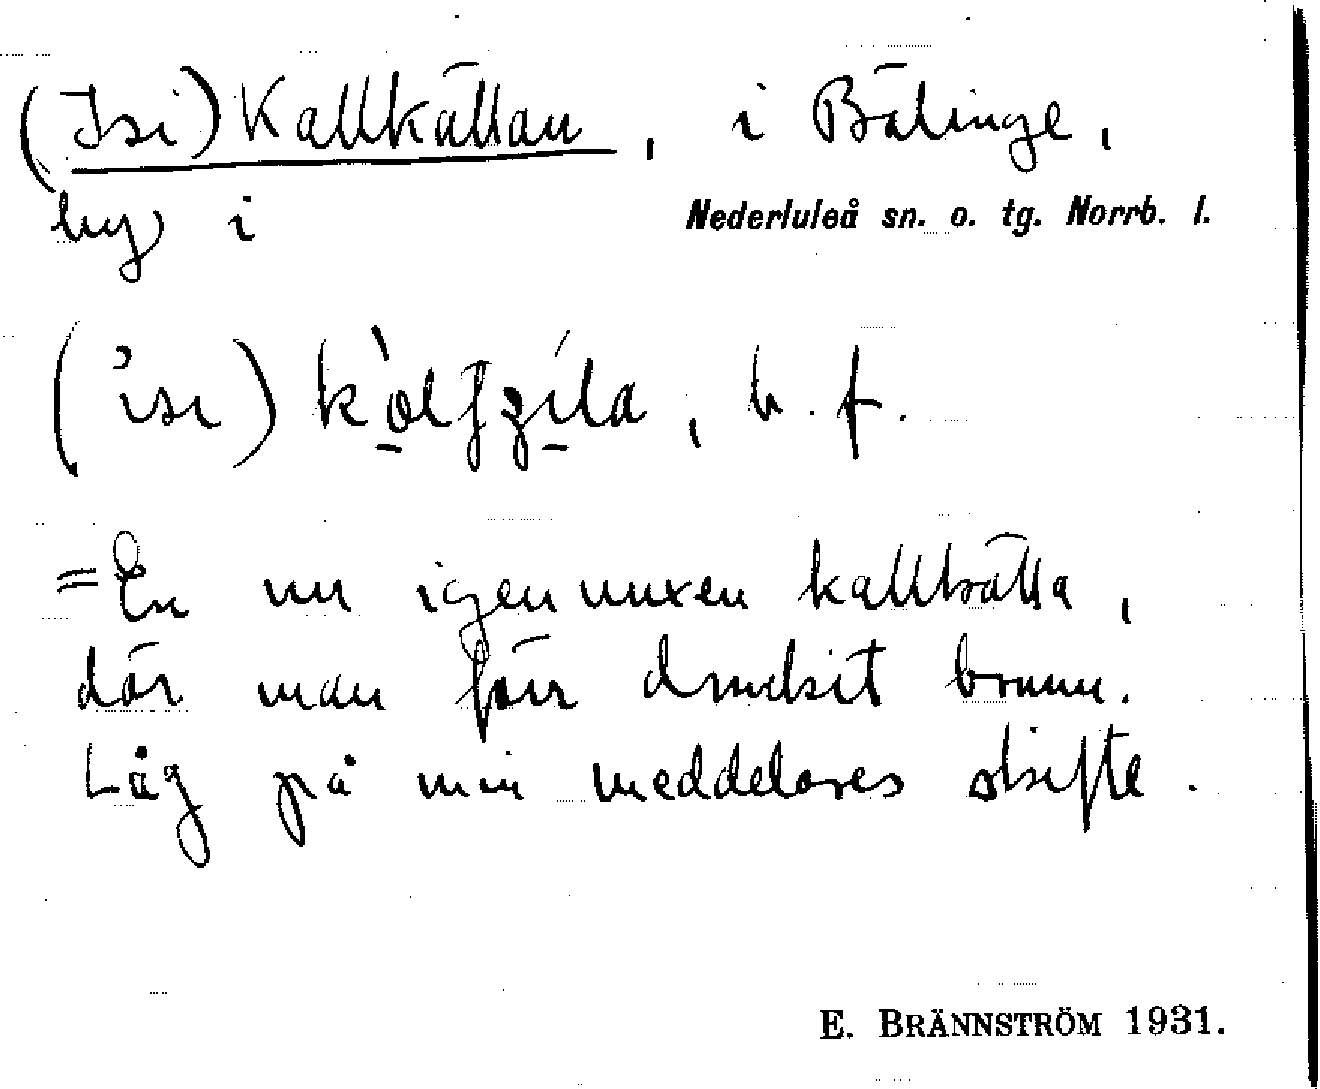 (Isi) Kallkällan, i Bälinge,
by i Nederluleå sn. o. tg. Norrb. l.
b. f.
= En nu igenvuxen kallkälla,
där man förr druckit brunn.
Låg på min meddelares skifte.
E. BRÄNNSTRÖM 1931.